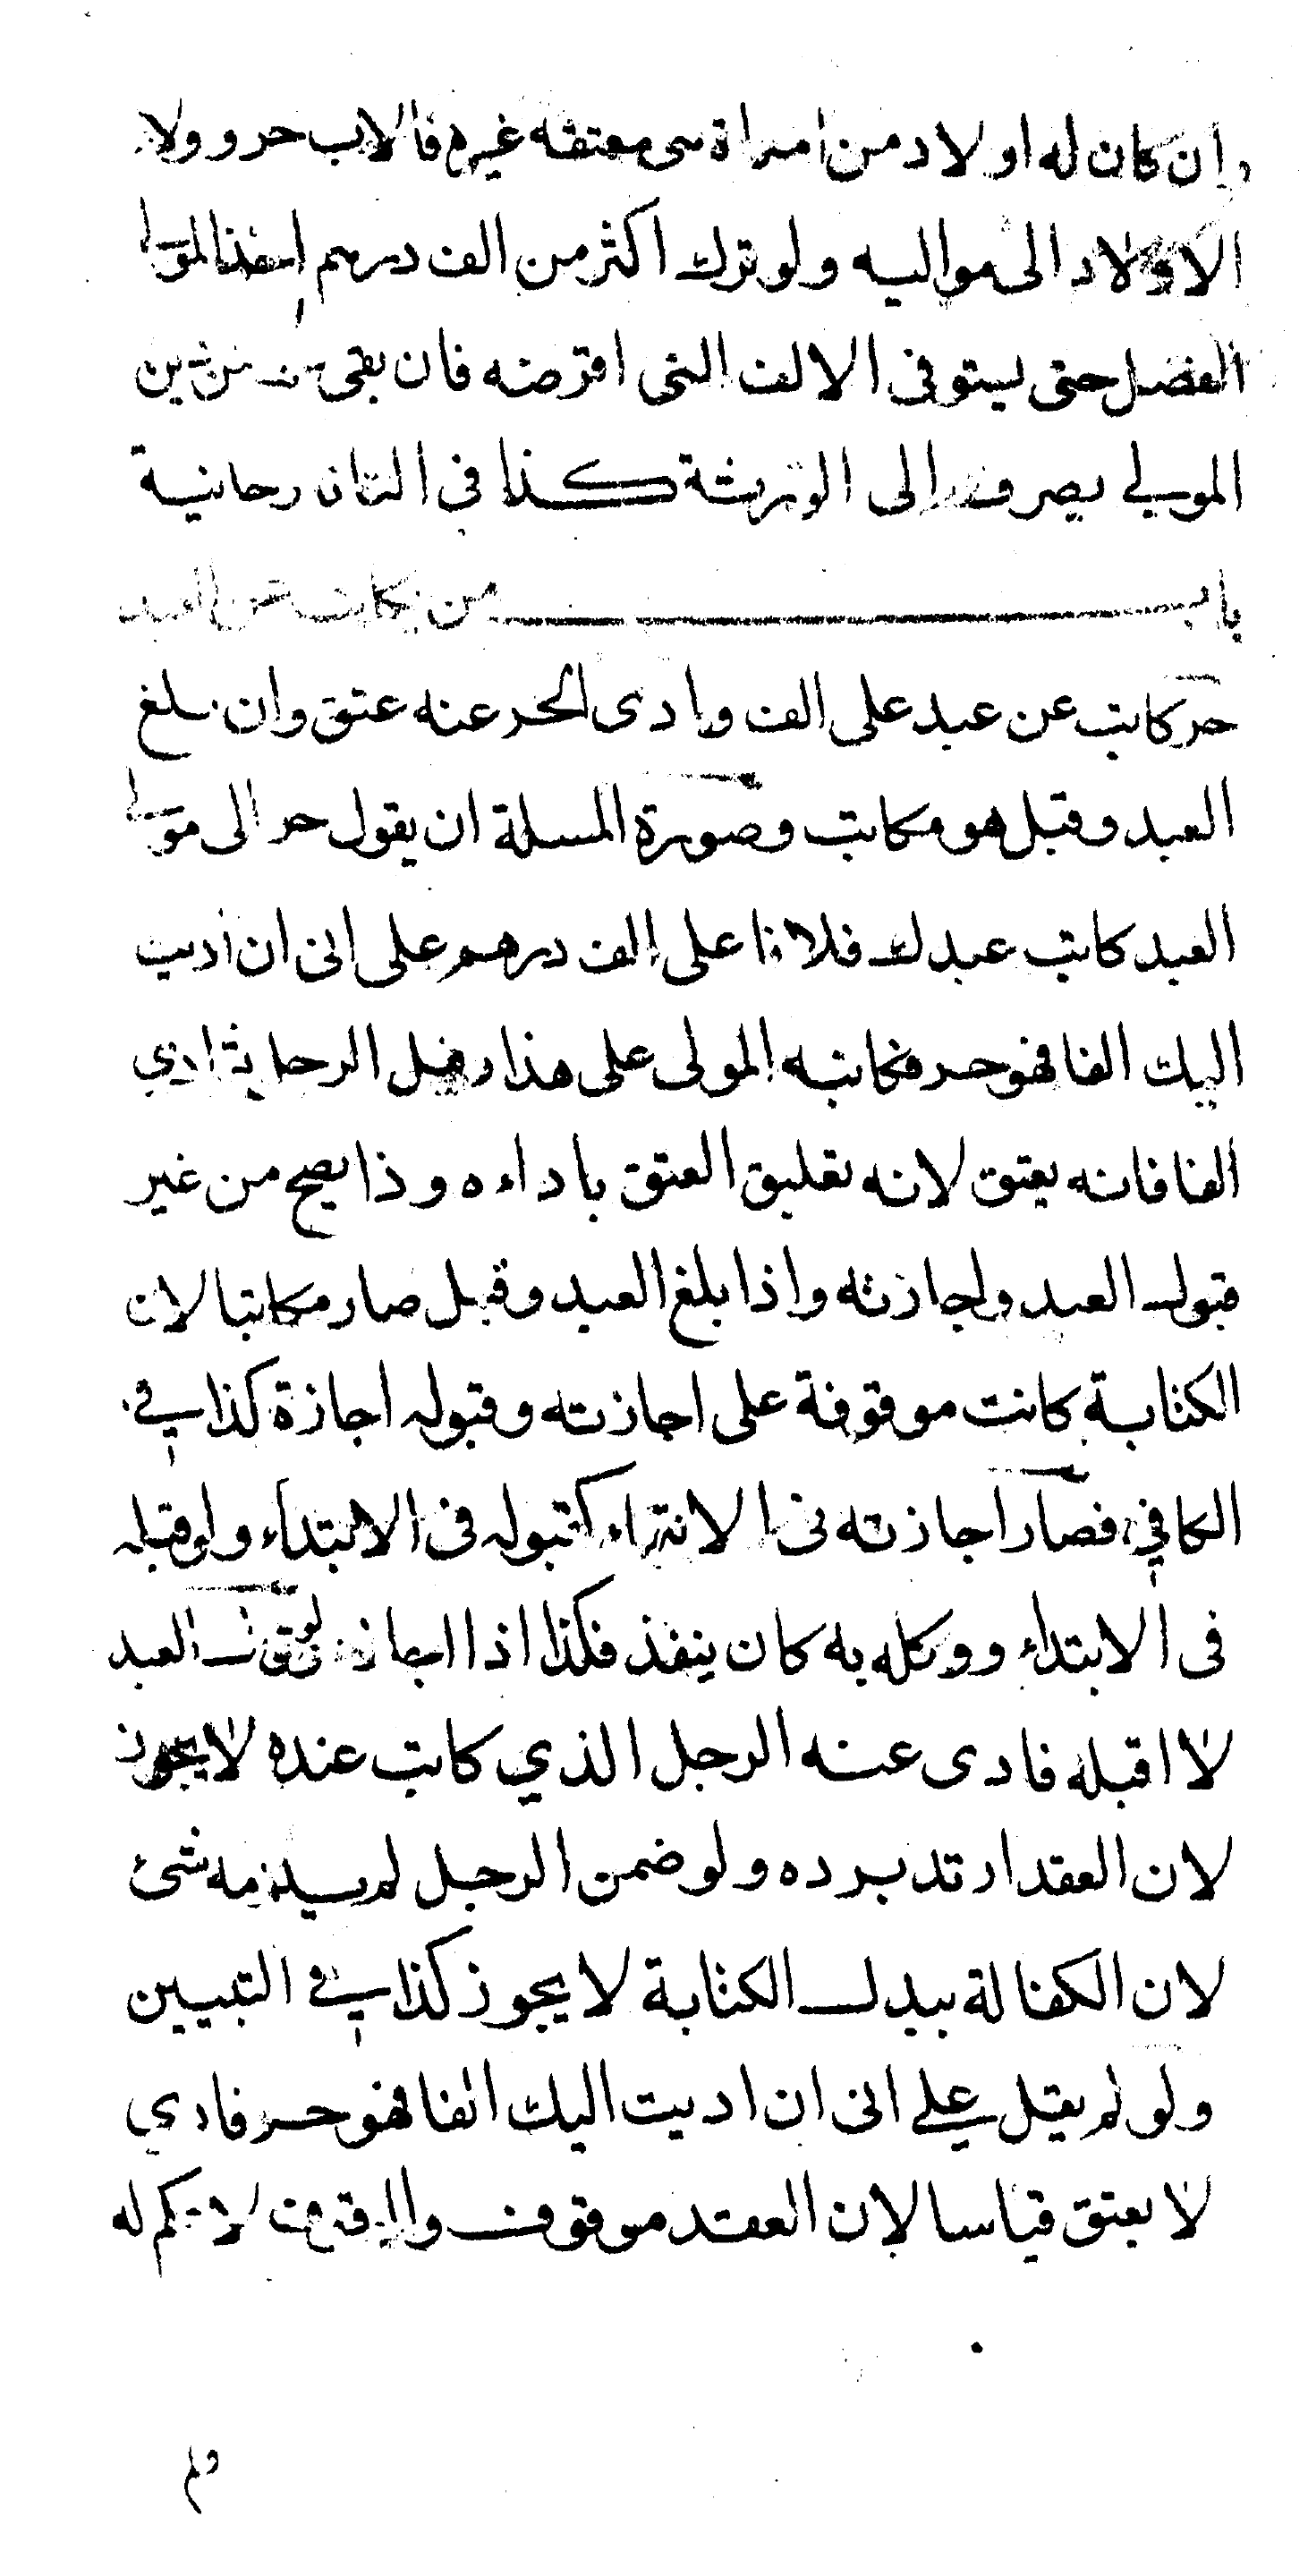 وان كان له اولاد من امراة هى معتقة غيره فالاب حر وولا
الاولاد الى مواليه ولو ترك اكثر من الف درهم اخذ المولى
الفضل حتى يستوفى الالف التى اقرضه فان بقى من دين
المولى يصرف الى الورثة كذا فى التاتارخانية
باب من يكاتب عن العبد
حر كاتب عن عبد على الف وادى الحر عنه عتق وان بلغ
العبد وقبل هو مكاتب وصورة المسلة ان يقول حر الى مولى
العبد كاتب عبدك فلانا على الف درهم على انى ان اديت
اليك الفا فهو حر فكاتبه المولى على هذا الرجل ثم ادى
الفا فانه يعتق لانه تعليق العتق باداءه وذا يصح من غير
قبول العبد واجازته واذا بلغ العبد وقبل صار مكاتبا لان
الكتابة كانت موقوفة على اجازته وقبوله اجازة كذا فى
الكافى فصار اجازته فى الانتهاء كقبوله فى الابتداء ولو قبله
فى الابتداء ووكله به كان ينفذ فكذا اذا اجازه لو قال العبد
لا اقبله فادى عنه الرجل الذي كاتب عنده لا يجوز
لان العقد ارتد برده ولو ضمن الرجل لم يلزمه شئ
لان الكفالة ببدل الكتابة لا يجوز كذا فى التبيين
ولو لم يقل على انى ان اديت اليك الفا فهو حر فادي
لا يعتق قياسا لان العقد موقوف والموقوف لا حكم له
ولم